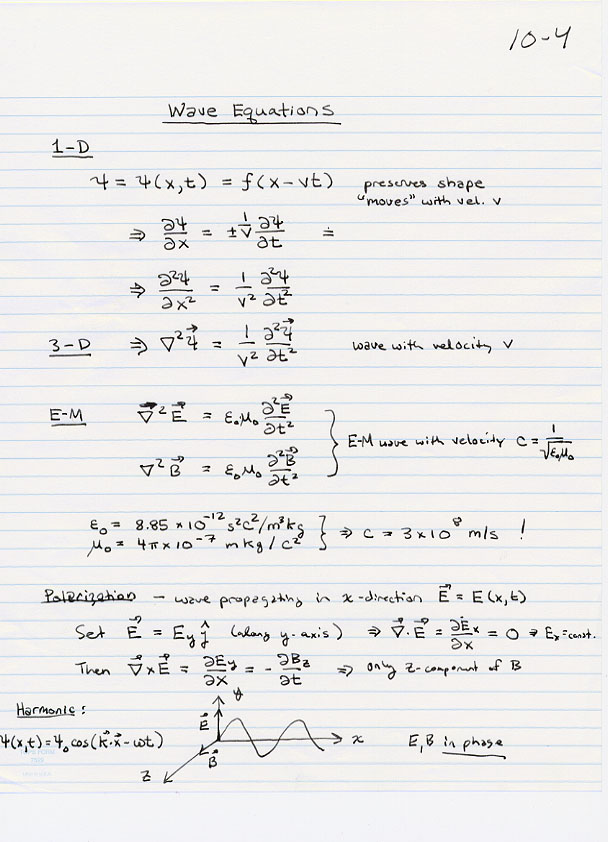 10-4
Wave Equations
1-D
ψ = ψ(x,t) = f(x-vt) preserves shape
"moves" with vel. v
⇒ ∂ψ/∂x = ± 1/v ∂ψ/∂t =
⇒ ∂²ψ/∂x² = 1/v² ∂²ψ/∂t²
3-D ⇒ ∇²ψ⃗ = 1/v² ∂²ψ⃗/∂t² wave with velocity v
E-M ∇⃗²E⃗ = ε₀μ₀ ∂²E⃗/∂t²
E-M wave with velocity c = 1/√ε₀μ₀
∇²B⃗ = ε₀μ₀ ∂²B⃗/∂t²
ε₀ = 8.85 × 10⁻¹² s²C²/m³kg
μ₀ = 4π × 10⁻⁷ m kg / C² } ⇒ c = 3 × 10⁸ m/s !
Polarization – wave propagating in x-direction E⃗ = E(x,t)
Set E⃗ = Eyĵ (along y-axis) ⇒ ∇⃗·E⃗ = ∂Ex/∂x = 0 ⇒ Ex=const.
Then ∇⃗×E⃗ = ∂Ey/∂x = - ∂Bz/∂t ⇒ only z-component of B
Harmonic:
ψ(x,t) = ψ₀ cos(k⃗·x⃗ - ωt)
y
E⃗
B⃗
x
z
E,B in phase